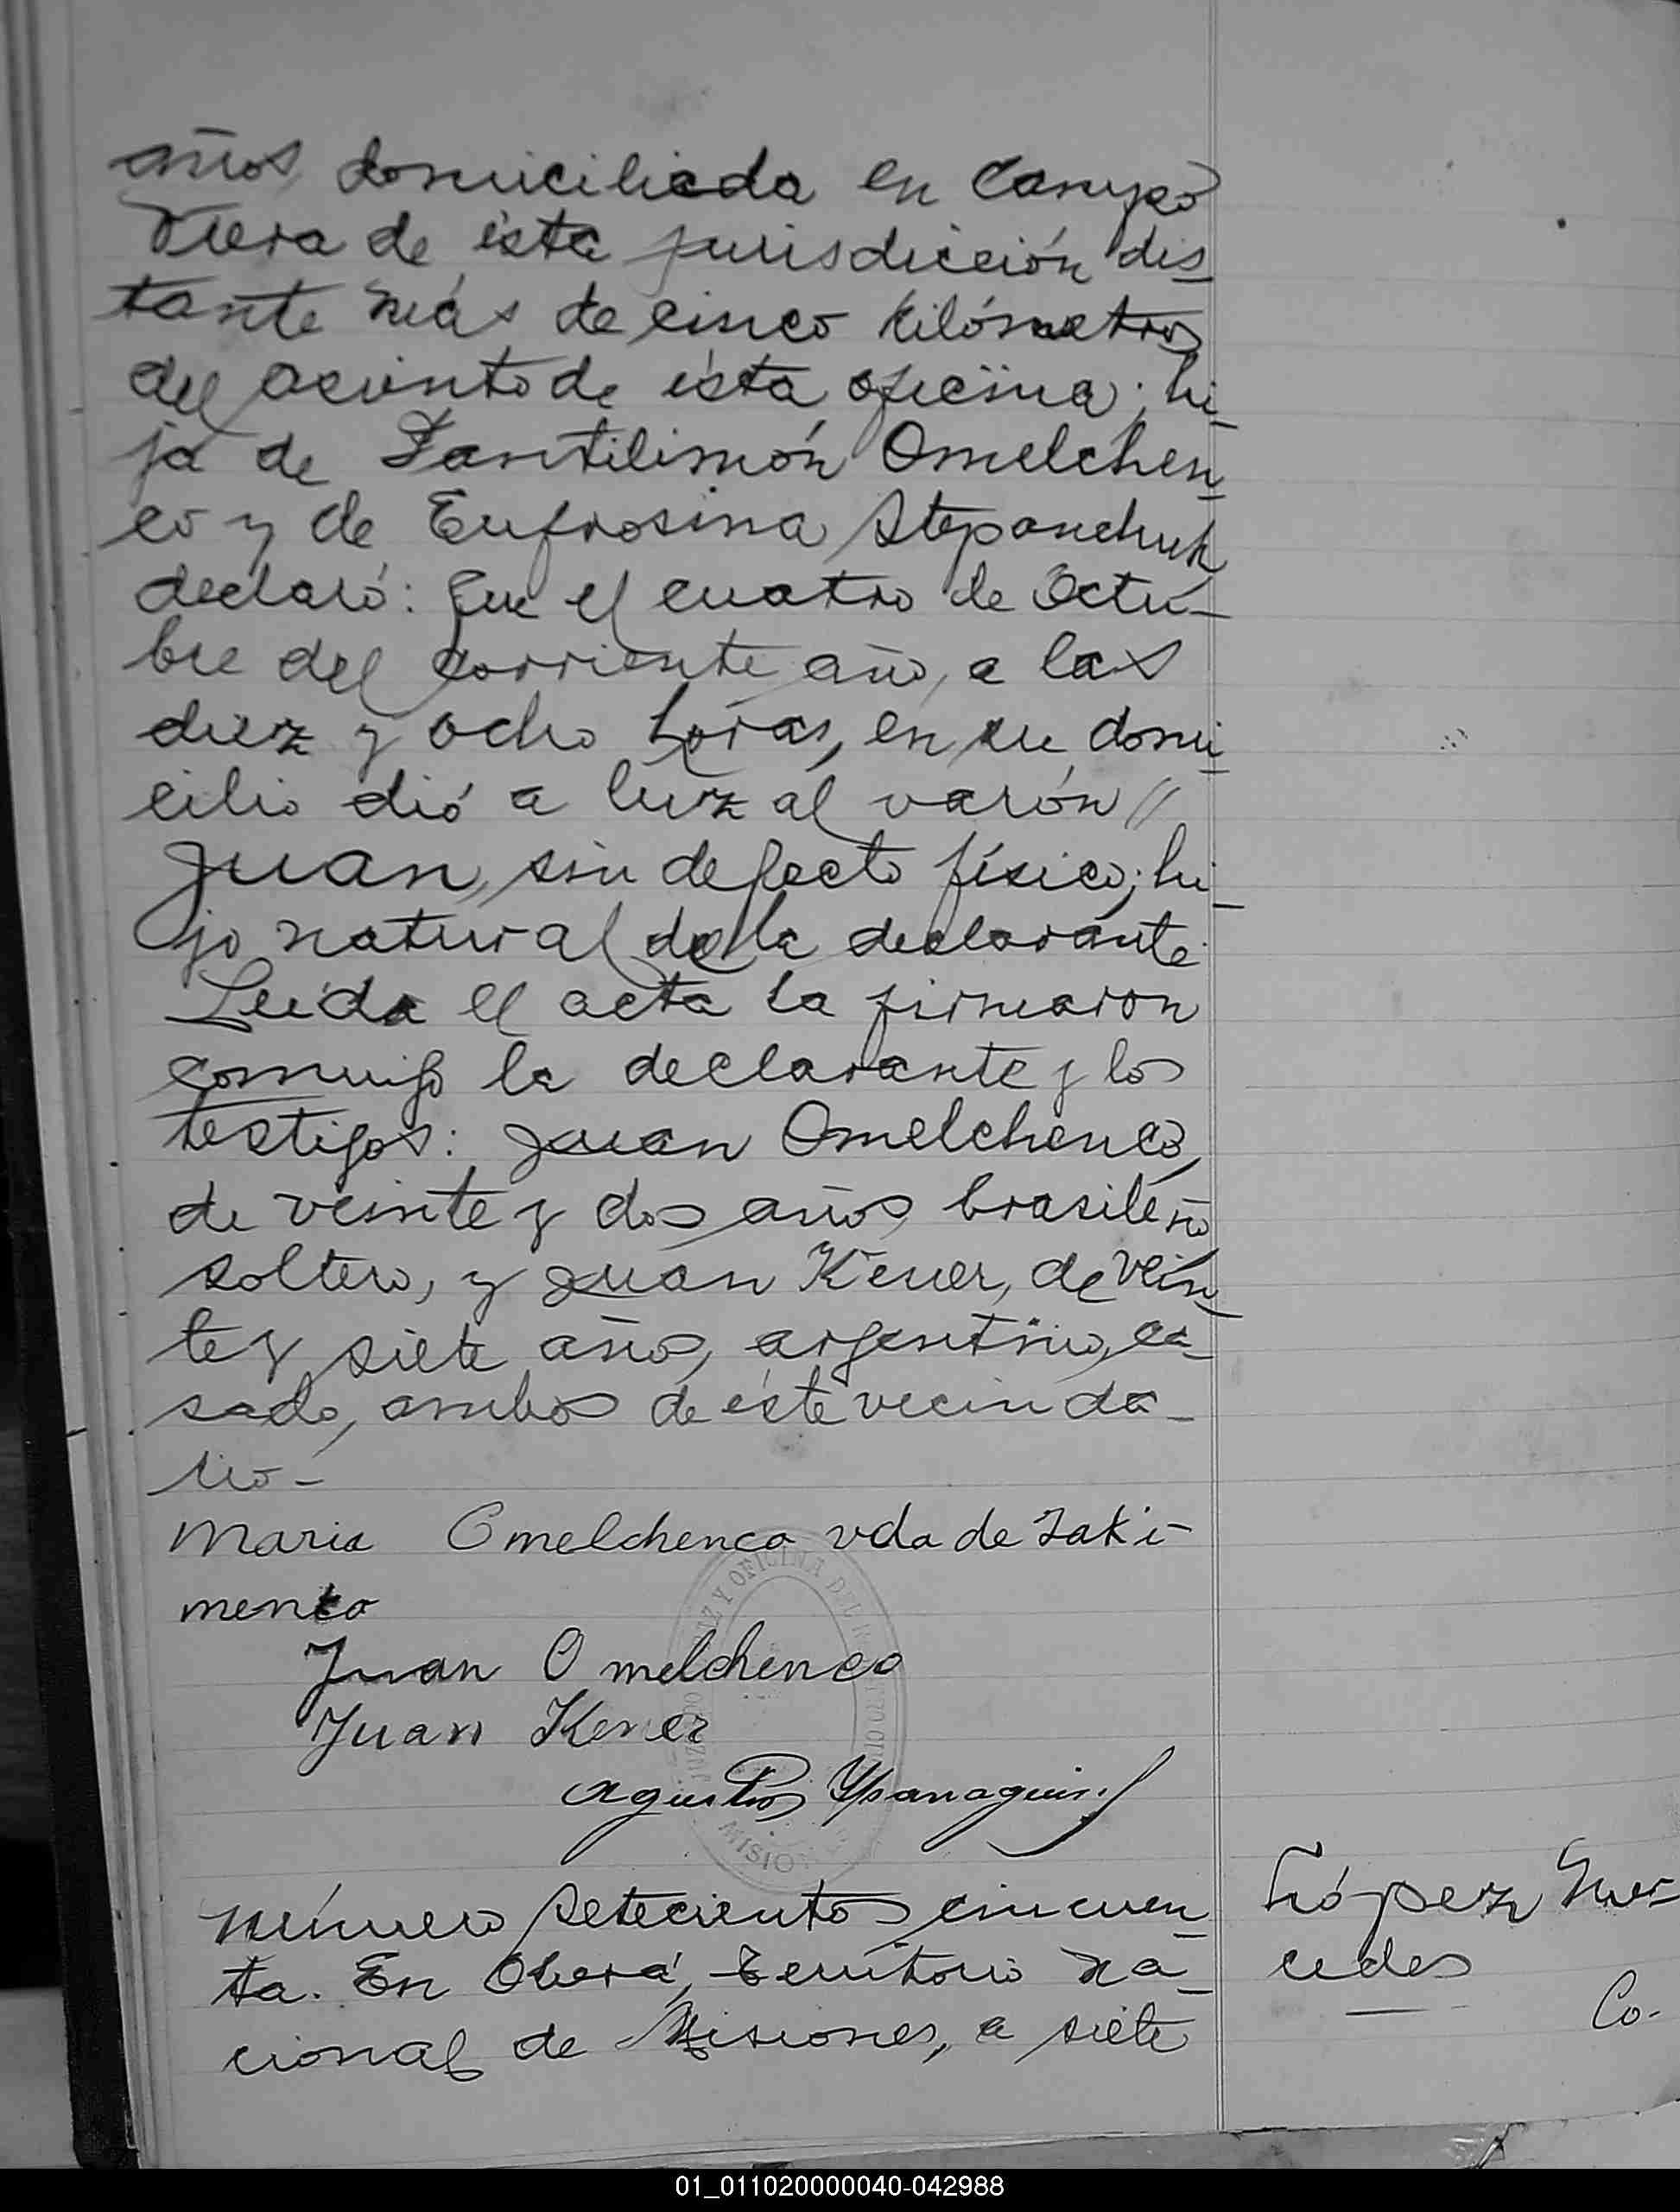 años domiciliada en Campo
Viera de ésta jurisdicción dis-
tante más de cinco kilómetros
del asiento de ésta oficina; hi-
ja de Pantilimón Omelchen-
co y de Eufrosina Stepanchuk
declaró: Que el cuatro de Octu-
bre del corriente año, a las
diez y ocho horas, en su domi-
cilio dió a luz al varón //
Juan, sin defecto físico; hi-
jo natural de la declarante
Leída el acta la firmaron
conmigo la declarante y los
testigos: Juan Omelchenco,
de veinte y dos años, brasileño
soltero, y Juan Kener, de vein-
te y siete años, argentino, ca-
sado, ambos de éste vecinda-
rio-
Maria Omelchenco vda de Iaki-
menco
Juan Omelchenco
Juan Kener
JUZGADO DE PAZ Y OFICINA DEL
MISIO
Número setecientos cincuen-
ta. En Oberá, Territorio Na-
cional de Misiones, a siete
López Mer-
cedes
Co.
01_011020000040-042988